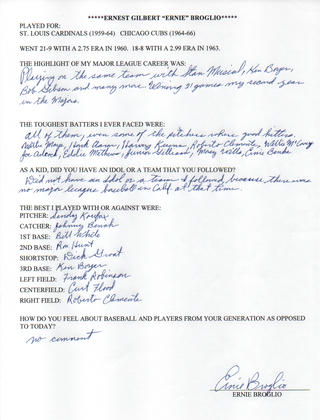 *****ERNEST GILBERT "ERNIE" BROGLIO*****
PLAYED FOR:
ST. LOUIS CARDINALS (1959-64)  CHICAGO CUBS (1964-66)
WENT 21-9 WITH A 2.75 ERA IN 1960.  18-8 WITH A 2.99 ERA IN 1963.
THE HIGHLIGHT OF MY MAJOR LEAGUE CAREER WAS:
Playing on the same team with Stan Musial, Ken Boyer,
Bob Gibson and many more. Winning 21 games my second year
in the Majors.
THE TOUGHEST BATTERS I EVER FACED WERE:
All of them, even some of the pitchers where good hitters.
Willie Mays, Hank Aaron, Harvey Kuenn, Roberto Clemente, Willie McCovey
Joe Adcock, Eddie Mathews, Junior Gilliam, Maury Wills, Ernie Banks
AS A KID, DID YOU HAVE AN IDOL OR A TEAM THAT YOU FOLLOWED?
Did not have an idol or a team I followed because there was
no major league baseball in Calif. at that time.
THE BEST I PLAYED WITH OR AGAINST WERE:
PITCHER: Sandy Koufax
CATCHER: Johnny Bench
1ST BASE: Bill White
2ND BASE: Ron Hunt
SHORTSTOP: Dick Groat
3RD BASE: Ken Boyer
LEFT FIELD: Frank Robinson
CENTERFIELD: Curt Flood
RIGHT FIELD: Roberto Clemente
HOW DO YOU FEEL ABOUT BASEBALL AND PLAYERS FROM YOUR GENERATION AS OPPOSED
TO TODAY?
no comment
Ernie Broglio
ERNIE BROGLIO